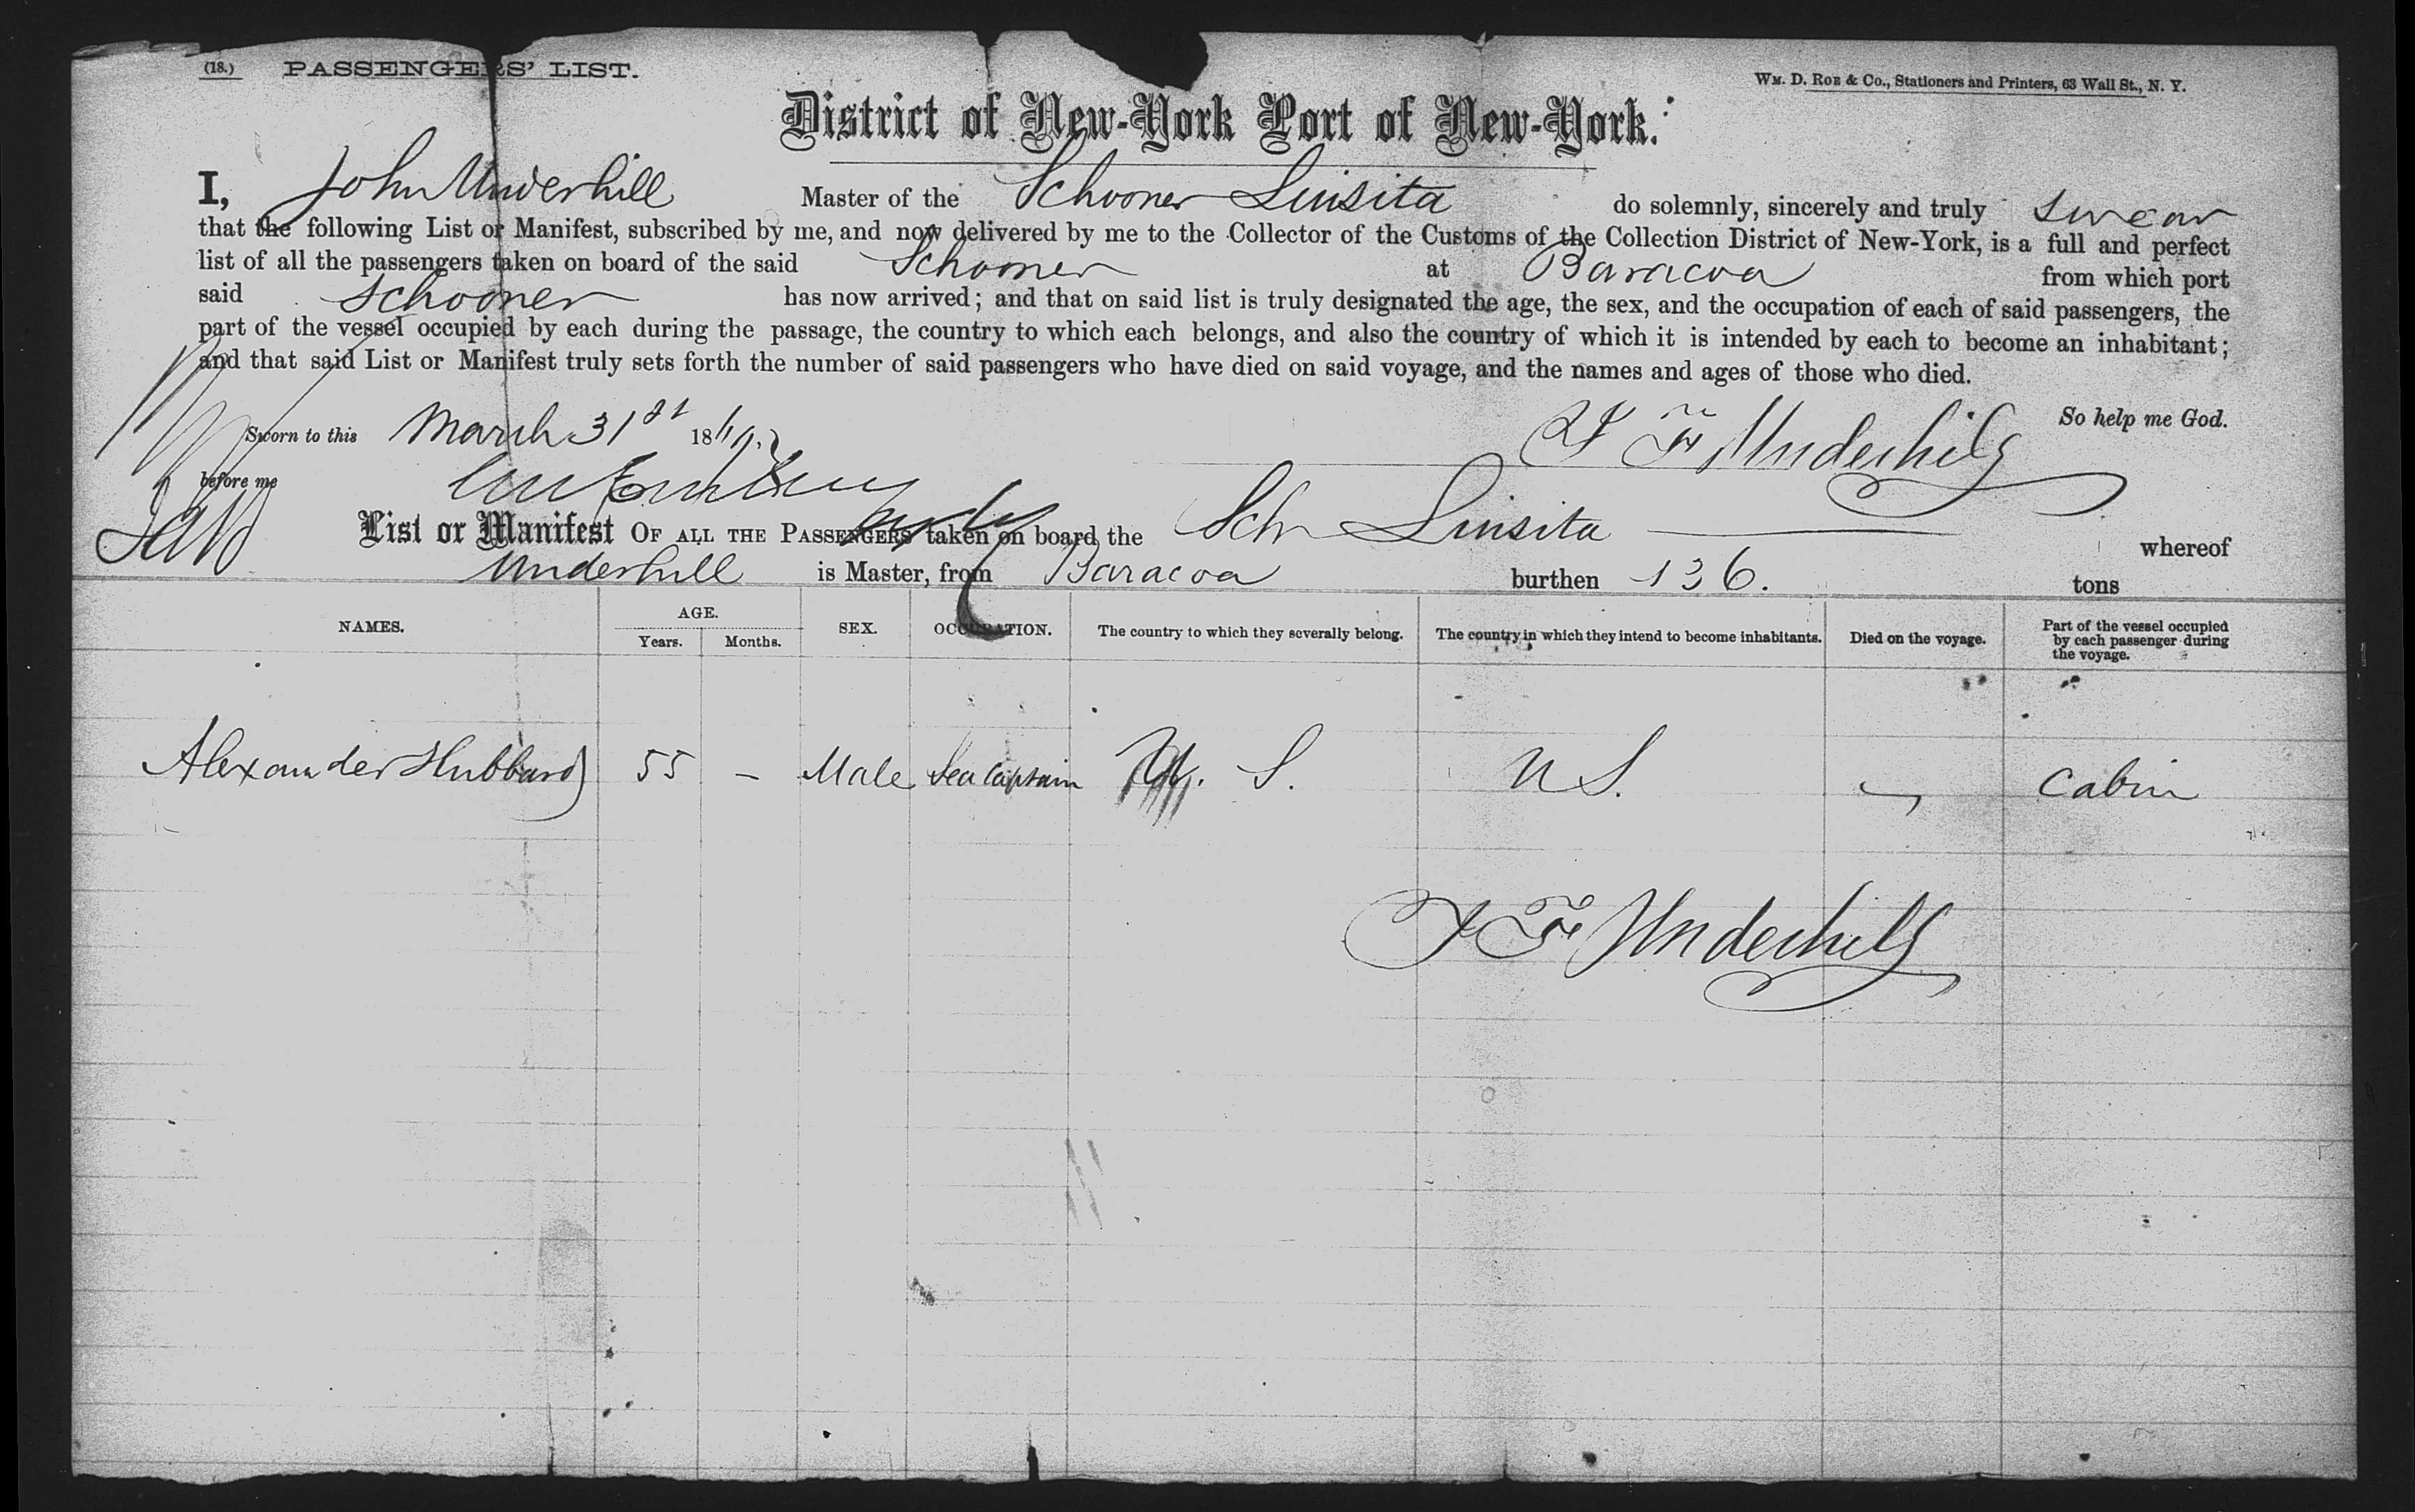 (18.) PASSENGERS' LIST.
WM. D. ROE & Co., Stationers and Printers, 63 Wall St., N. Y.
District of New-York Port of New-York.
I, John Underhill Master of the Schooner Linsita do solemnly, sincerely and truly swear
that the following List or Manifest, subscribed by me, and now delivered by me to the Collector of the Customs of the Collection District of New-York, is a full and perfect
list of all the passengers taken on board of the said Schooner at Baracoa from which port
said Schooner has now arrived; and that on said list is truly designated the age, the sex, and the occupation of each of said passengers, the
part of the vessel occupied by each during the passage, the country to which each belongs, and also the country of which it is intended by each to become an inhabitant;
and that said List or Manifest truly sets forth the number of said passengers who have died on said voyage, and the names and ages of those who died.
So help me God.
Sworn to this March 31st 1869.
F Underhill
before me
List or Manifest OF ALL THE PASSENGERS taken on board the Sch Linsita whereof
Underhill is Master, from Baracoa burthen 136. tons
NAMES. AGE. SEX. OCCUPATION. The country to which they severally belong. The country in which they intend to become inhabitants. Died on the voyage. Part of the vessel occupied by each passenger during the voyage.
Years. Months.
Alexander Hubbard 55 - Male Sea Captain U. S. U S. Cabin
F Underhill